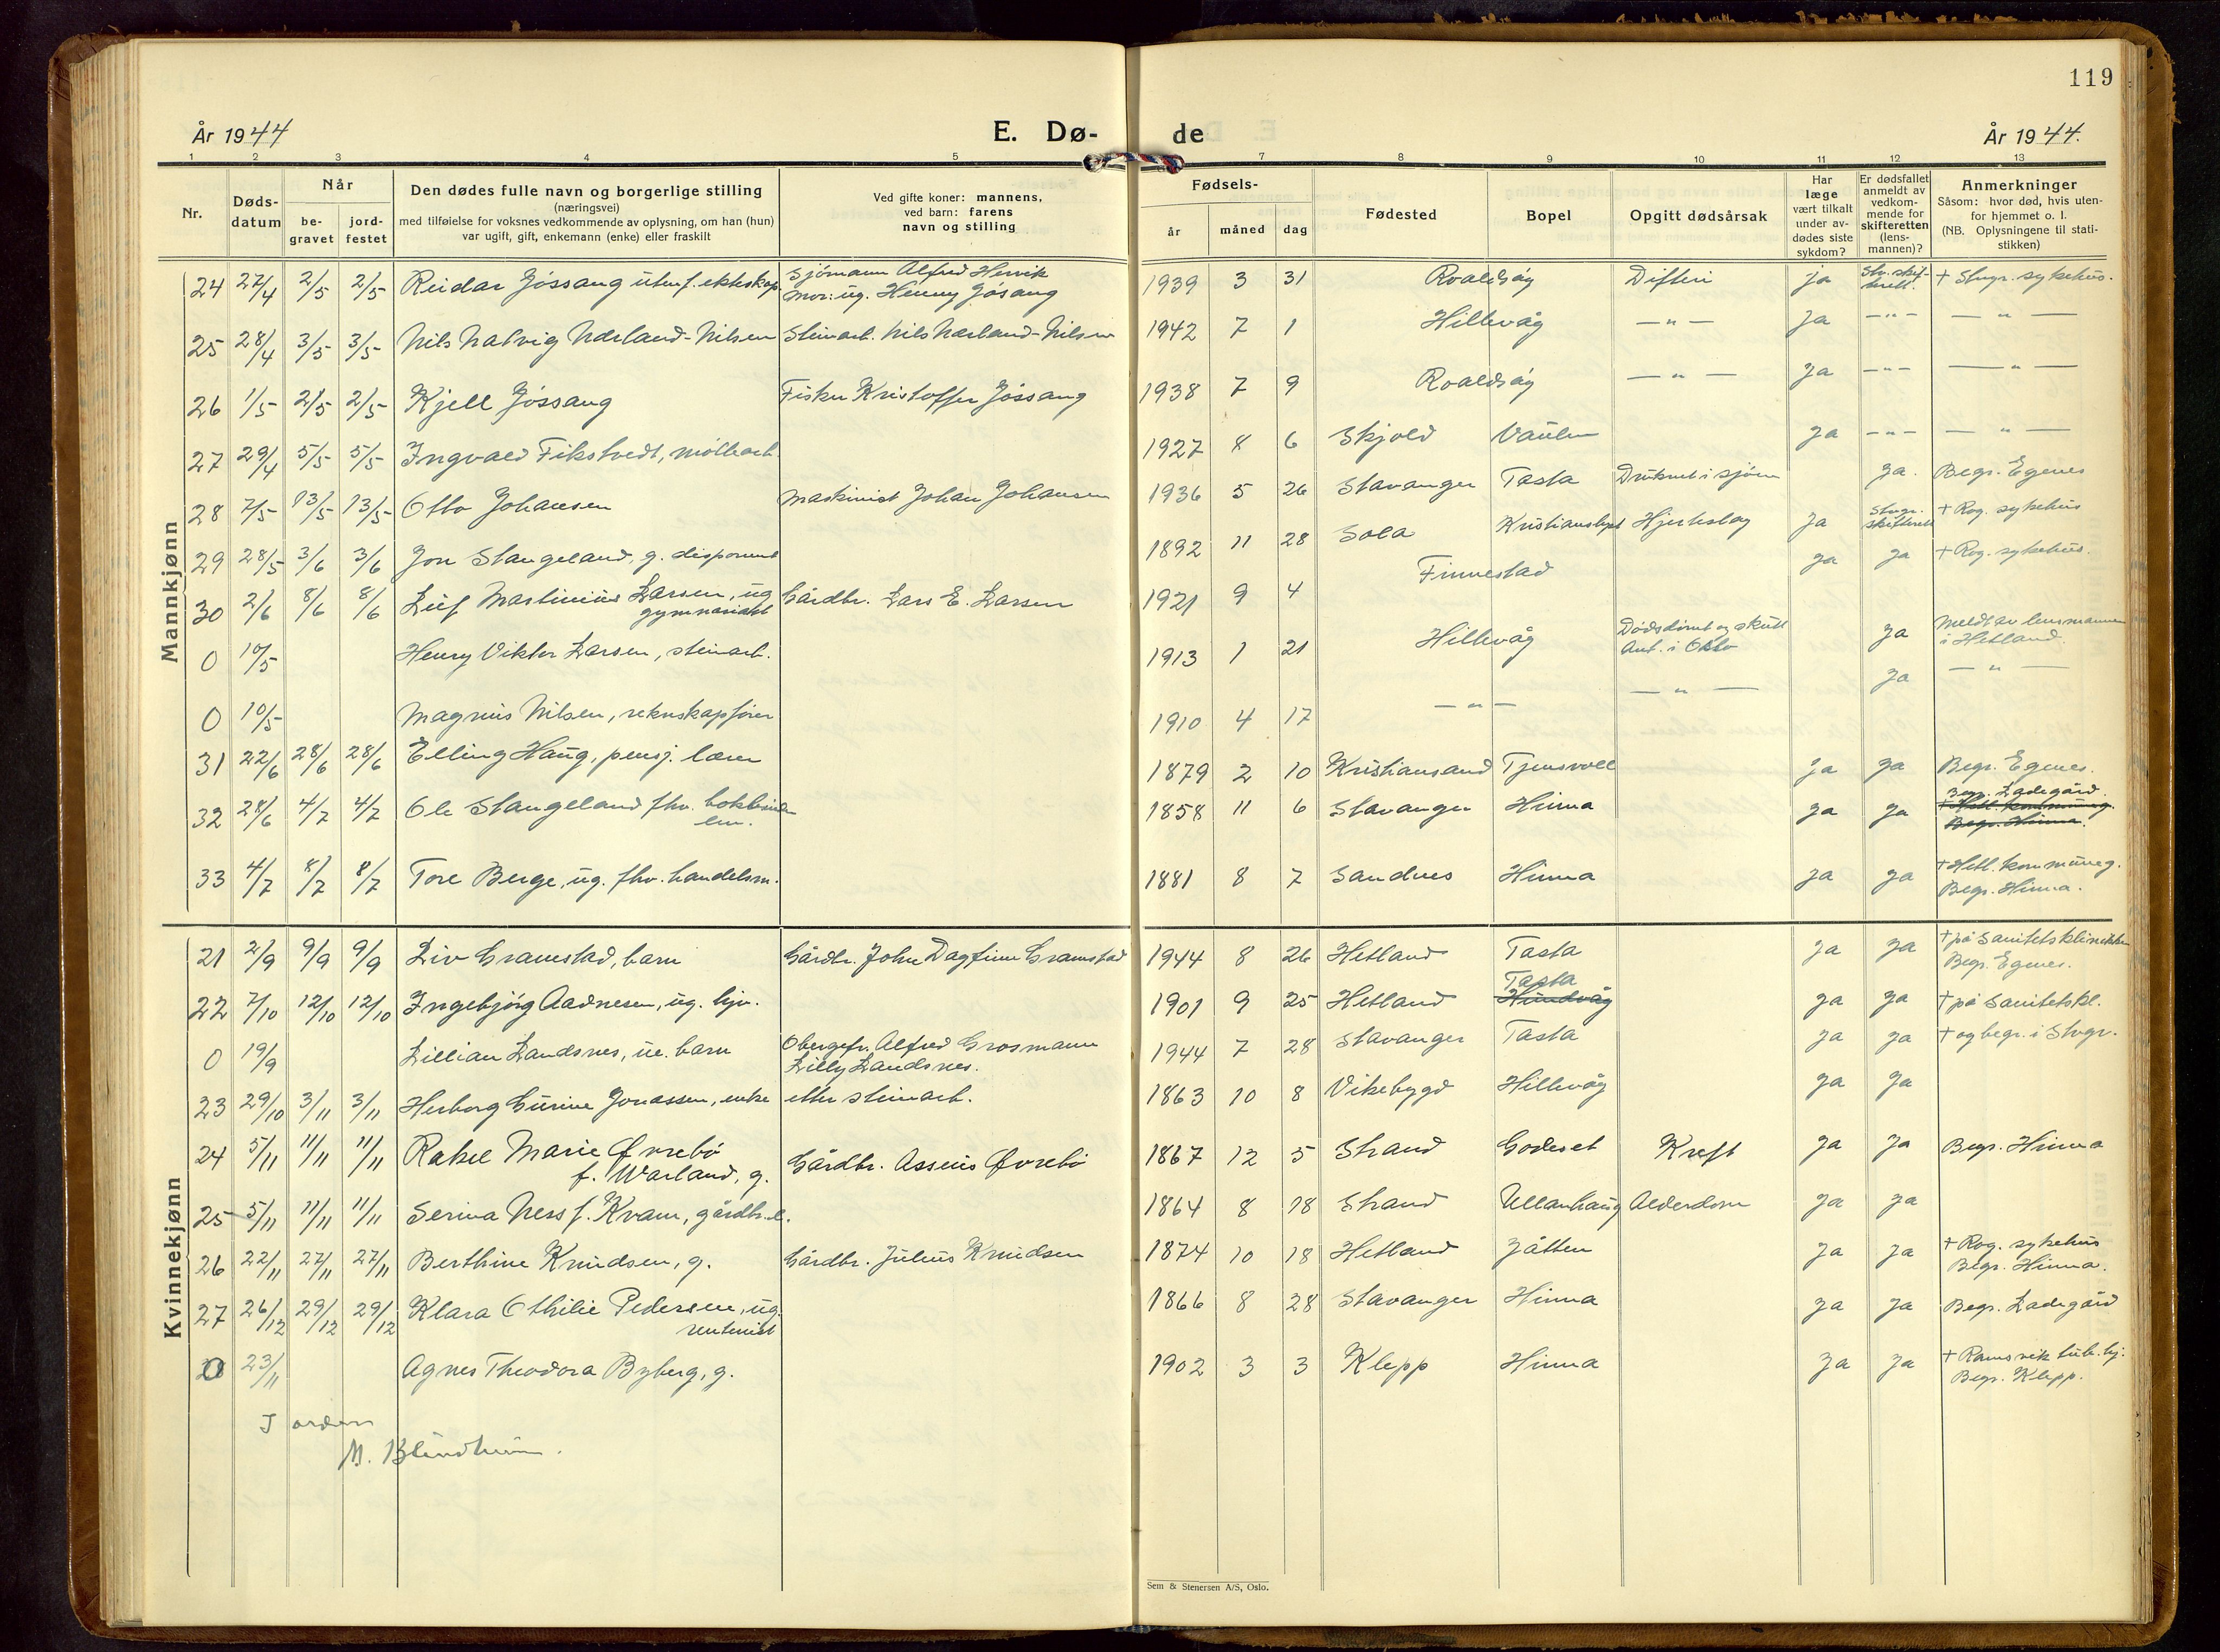 119
År 1944
E. Dø-
de
År 1944.
1 2 3 4 5 7 8 9 10 11 12 13
Nr.
Døds-
datum
Når
be-
gravet
jord-
festet
Den dødes fulle navn og borgerlige stilling
(næringsvei)
med tilføielse for voksnes vedkommende av oplysning, om han (hun)
var ugift, gift, enkemann (enke) eller fraskilt
Ved gifte koner: mannens,
ved barn: farens
navn og stilling
Fødsels-
år
måned
dag
Fødested
Bopel
Opgitt dødsårsak
Har
læge
vært tilkalt
under av-
dødes siste
sykdom?
Er dødsfallet
anmeldt av
vedkom-
mende for
skifteretten
(lens-
mannen)?
Anmerkninger
Såsom: hvor død, hvis uten-
for hjemmet o. l.
(NB. Oplysningene til stati-
stikken)
Mannkjønn
24 27/4 2/5 2/5 Reidar Jøssang utenf. ekteskap Sjømann Alfred Hervik
Mor: ug. Henny Jøsang 1939 3 31 Roaldsøy Difteri ja Stv. skif-
terett. + Stvgr. sykehus.
25 28/4 3/5 3/5 Nils Natvig Nærland-Nilsen Steinarb. Nils Nærland-Nilsen 1942 7 1 Hillevåg — " — ja — " — — " —
26 1/5 2/5 2/5 Kjell Jøssang Fisker Kristoffer Jøssang 1938 7 9 Roaldsøy — " — ja — " — — " —
27 29/4 5/5 5/5 Ingvald Fikstvedt, møllearb. 1927 8 6 Skjold Vaulen ja — " — — " —
28 7/5 13/5 13/5 Otto Johansen Maskinist Johan Johansen 1936 5 26 Stavanger Tasta Druknet i sjøen ja. Begr. Egenes
29 28/5 3/6 3/6 Jon Stangeland, g. disponent 1892 11 28 Sola Kristianslyst Hjerteslag ja Stvgr.
skifterett + Rog. sykehus
30 2/6 8/6 8/6 Leif Martinius Larsen, ug
gymnasiast Gårdbr. Lars E. Larsen 1921 9 4 Finnestad ja ja + Rog. sykehus.
0 10/5 Henry Viktor Larsen, steinarb. 1913 1 21 Hillevåg Dødsdømt og skutt
Ant. i Oslo ja Meldt av lensmannen
i Hetland.
0 10/5 Magnus Nilsen, reknskapsfører 1910 4 17 — " — — " — ja — " —
31 22/6 28/6 28/6 Elling Haug, pensj. lærer 1879 2 10 Kristiansand Tjensvoll ja ja Begr. Egenes.
32 28/6 4/7 4/7 Ole Stangeland fhv. bokbinder
em. 1858 11 6 Stavanger Hinna ja ja Begr. Ladegård.
+ Hetl. kommuneg.
Begr. Hinna.
33 4/7 8/7 8/7 Tore Berge, ug. fhv. handelsm. 1881 8 7 Sandnes Hinna ja ja + Hetl. kommuneg.
Begr. Hinna.
Kvinnekjønn
21 2/9 9/9 9/9 Liv Gramstad, barn Gårdbr. John Dagfinn Gramstad 1944 8 26 Hetland Tasta ja ja + på Sanitetsklinikken
Begr. Egenes.
22 7/10 12/10 12/10 Ingebjørg Aadnesen, ug. hjv. 1901 9 25 Hetland Tasta
Hundvåg ja ja + på Sanitetskl.
0 19/9 Lillian Landsnes, ue. barn Obergefr. Alfred Grosmann
Lilly Landsnes. 1944 7 28 Stavanger Tasta ja ja + og begr. i Stvgr.
23 29/10 3/11 3/11 Herborg Gurine Jonassen, enke etter steinarb. 1863 10 8 Vikebygd Hillevåg ja ja
24 5/11 11/11 11/11 Rakel Marie Øvrebø
f. Warland, g. Gårdbr. Asseus Øvrebø 1867 12 5 Strand Godeset Kreft ja ja Begr. Hinna
25 5/11 11/11 11/11 Serina Ness f. Kvam, gårdbr.e. 1864 8 18 Strand Ullanhaug Alderdom ja ja
26 22/11 27/11 27/11 Berthine Knudsen, g. Gårdbr. Julius Knudsen 1874 10 18 Hetland Jåtten ja ja + Rog. sykehus
Begr. Hinna.
27 26/12 29/12 29/12 Klara Othilie Pedersen, ug.
rentenist 1866 8 28 Stavanger Hinna ja ja Begr. Ladegård
0 23/11 Agnes Theodora Byberg, g. 1902 3 3 Klepp Hinna ja ja + Ramsvik tub. hj.
Begr. Klepp.
I orden
M. Blindheim.
Sem & Stenersen A/S, Oslo.